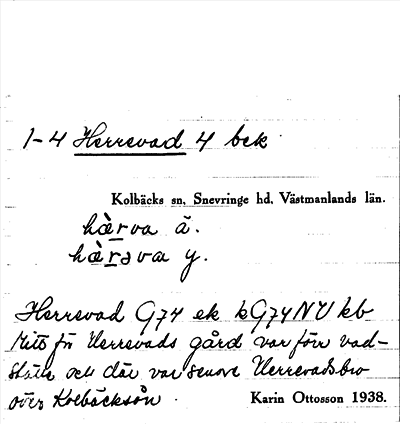 1-4 Herrevad 4 bek
Kolbäcks sn, Snevringe hd, Västmanlands län.
hærva ä.
hærəva y.
Herrevad G74 ek kG74NV kb
Mitt för Herrevads gård var förr vad-
ställe och där var senare Herrevadsbro
över Kolbäcksån.
Karin Ottosson 1938.